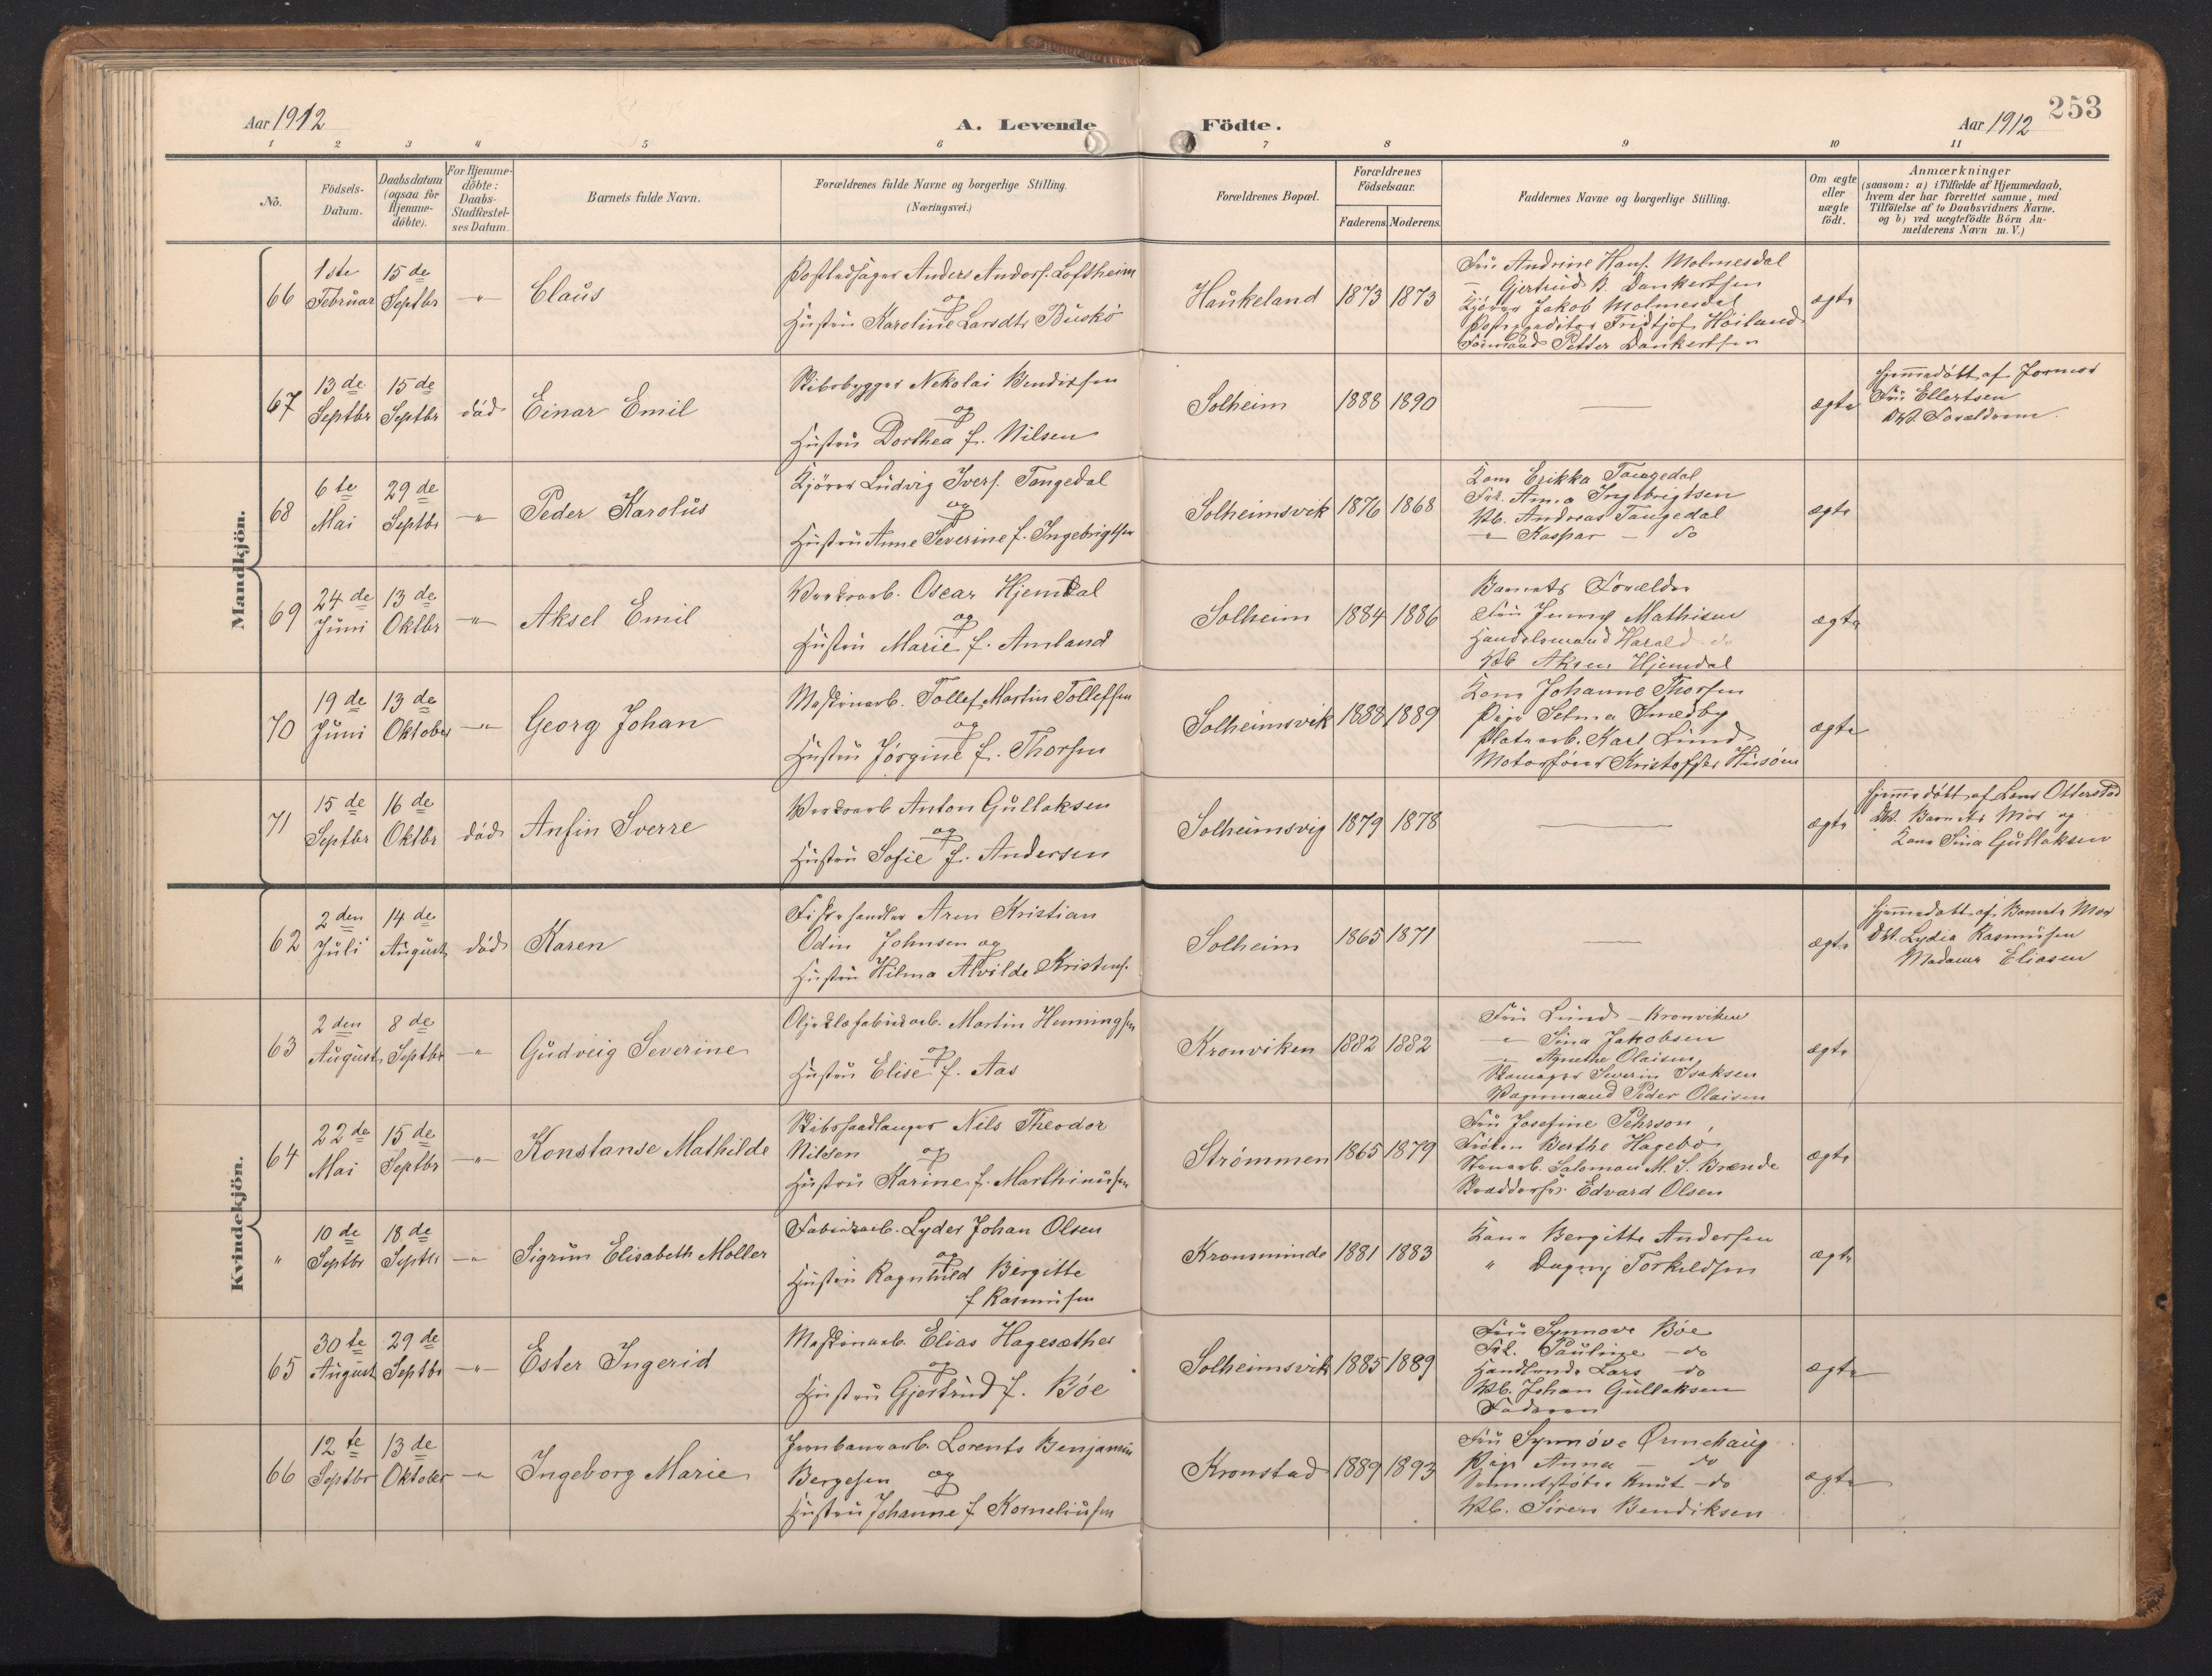 Aar 1912
A. Levende Födte.
Aar 1912
253
1 2 3 4 5 6 7 8 9 10 11
No.
Födsels-Datum.
Daabsdatum (ogsaa for Hjemmedöbte).
For Hjemmedöbte: Daabs-Stadfæstelses Datum.
Barnets fulde Navn.
Forældrenes fulde Navne og borgerlige Stilling.
(Næringsvei.)
Forældrenes Bopæl.
Forældrenes Födselsaar.
Faderens. Moderens.
Faddernes Navne og borgerlige Stilling.
Om ægte eller uægte födt.
Anmærkninger
(saasom: a) i Tilfælde af Hjemmedaab, hvem der har forrettet samme, med Tilföielse af to Daabsvidners Navne, og b) ved uægtefödte Börn Anmelderens Navn m. V.)
Mandkjön.
66 1ste Februar 15de Septbr -"- Claus
Anders Anders. Loftheim
og
Hustru Karoline Larsdtr Buskø
Haukeland 1873 1873
Fru Andrine Hans. Molmesdal
- Gjertrud B. Dankertsen
Kjører Jakob Molmesdal
Postexpeditør Fridtjof Höiland
Formand Petter Dankertsen
ægte
67 13de Septbr 15de Septbr död Einar Emil
Skibsbygger Nekolai Bendixsen
og
Hustru Dorthea f. Nilsen
Solheim 1888 1890
—
ægte
Hjemmedöbt af Jormor
Fru Ellertsen
Dbv. Forældrene.
68 6te Mai 29de Septbr -"- Peder Karolus
Kjörer Ludvig Ivers. Tangedal
og
Hustru Anne Severine f. Ingebrigtsen
Solheimsvik 1876 1868
Kone Erikka Tangedal
Frk. Anna Ingebrigtsen
Ub. Andreas Tangedal
-"- Kaspar - do
ægte
69 24de Juni 13de Oktbr -"- Aksel Emil
Verksarb. Oscar Hjemdal
og
Hustru Marie f. Amland
Solheim 1884 1886
Barnets Forældre
Fru Jenny Mathisen
Handelsmand Harald do
Ub Aksen Hjemdal
ægte
70 19de Juni 13de Oktober -"- Georg Johan
Maskinarb. Tollef Martin Tollefsen
og
Hustru Jørgine f. Thorsen
Solheimsvik 1888 1889
Kone Johanne Thorsen
Pige Selma Smedby
Platearb. Karl Lund
Motorfører Kristoffer Husöen
ægte
71 15de Septbr 16de Oktbr död Anfin Sverre
Verksarb Anton Gullaksen
og
Hustru Sofie f. Andersen
Solheimsvig 1879 1878
—
ægte
Hjemmedöbt af Lars Otterstad
Dbv. Barnets Mor og
Kone Sina Gullaksen
Kvindekjön.
62 2den Juli 14de August död Karen
Fiskehandler Aren Kristian
Odin Johnsen og
Hustru Hilma Alvilde Kristens.
Solheim 1865 1871
—
ægte
Hjemmedöbt af Barnets Mor
Dbv. Lydia Rasmusen
Madame Eliasen
63 2den August 8de Septbr -"- Gudveig Severine
Oljeklæfabrikarb. Martin Henningsen
og
Hustru Elise f. Aas
Kronviken 1882 1882
Fru Lund - Kronviken
-"- Sina Jakobsen
-"- Agnethe Olaisen
Skomager Severin Isaksen
Vognmand Peder Olaisen
ægte
64 22de Mai 15de Septbr -"- Konstanse Mathilde
Skibshandlanger Nils Theodor
Nilsen og
Hustru Karine f. Marthinussen
Strömmen 1865 1879
Fru Josefine Pehrson
Fröken Berthe Hagebö
Stenarb. Salomon M. S. Brænde
Edvard Olsen
ægte
" 10de Septbr 18de Septbr -"- Sigrun Elisabeth Møller
Fabrikarb. Lyder Johan Olsen
og
Hustru Ragnhild Birgitte
f Rasmusen
Kronsminde 1881 1883
Kone Bergitte Andersen
" Dagny Torkildsen
ægte
65 30te August 29de Septbr -"- Ester Ingerid
Maskinarb. Elias Hagesæther
og
Hustru Gjertrud f. Böe
Solheimsvik 1885 1889
Fru Synnove Böe
Frk. Pauline - do
Handlende Lars do
Ub. Johan Gullaksen
Faderen
ægte
66 12te Septbr 13de Oktober -"- Ingeborg Marie
Jernbanearb. Lorents Benjamin
Bergesen og
Hustru Johanne f Korneliussen
Kronstad 1889 1893
Fru Synnöve Ørnehaug
Pige Anna - do
Sementstöber Knut - do
Ub. Sören Bendiksen
ægte